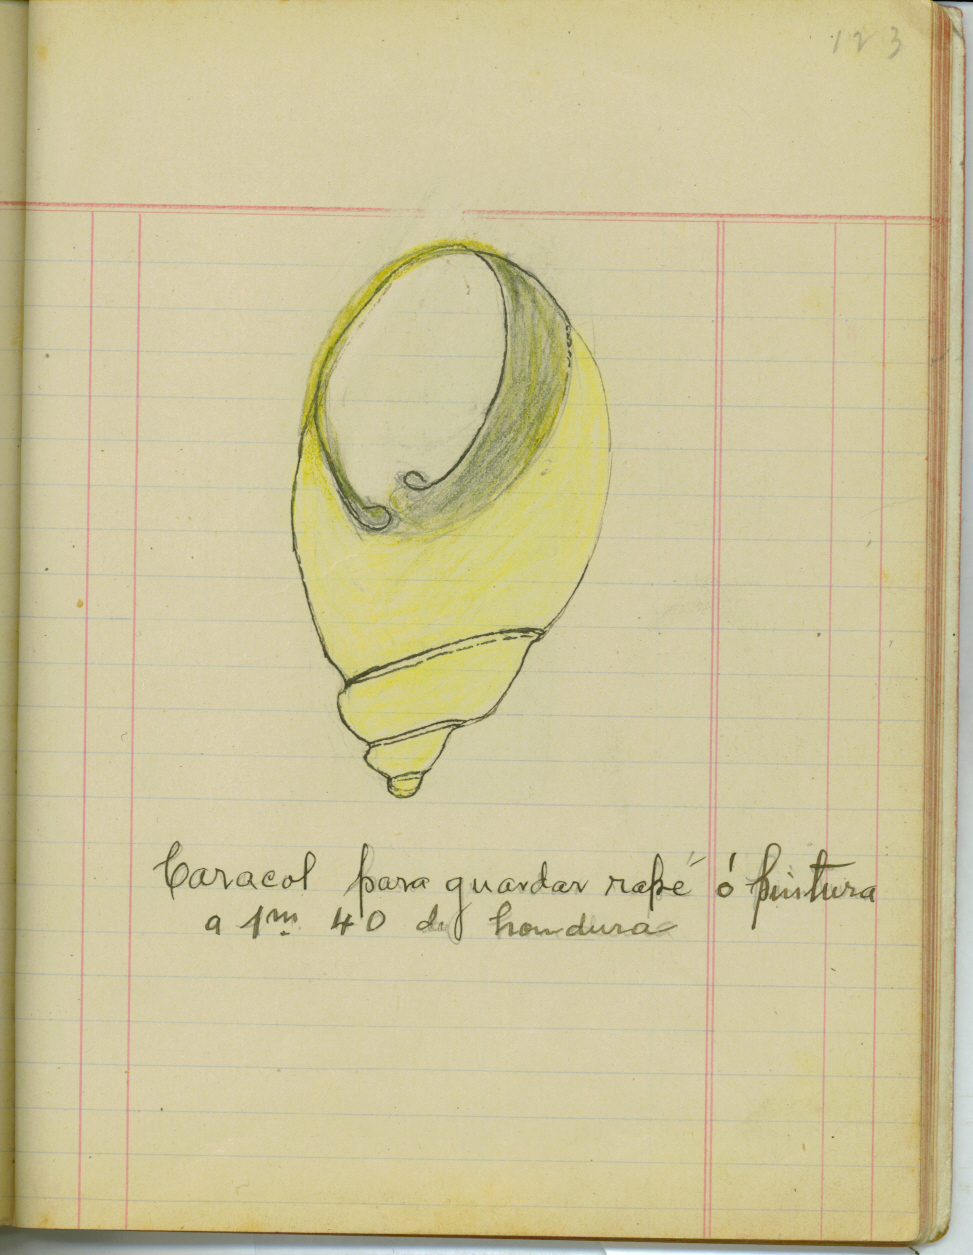 123
Caracol para guardar rapé ó pintura
a 1m 40 de hondura